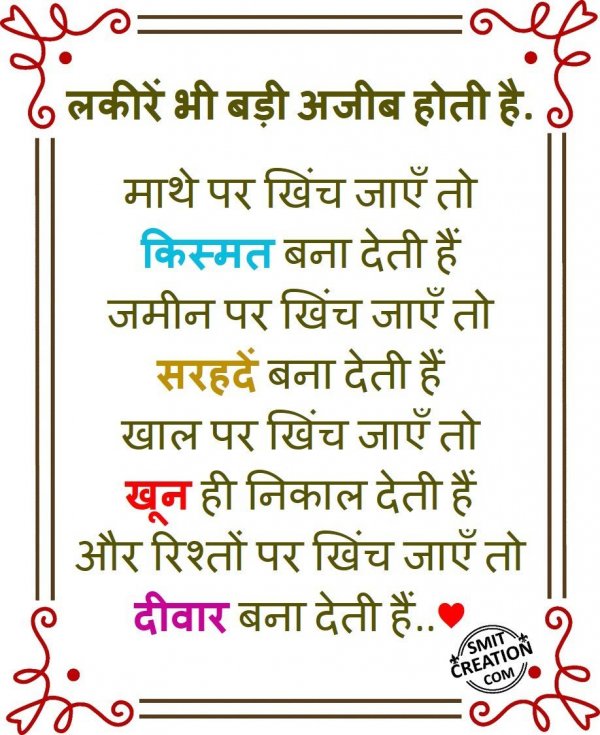 लकीरें भी बड़ी अजीब होती है.
माथे पर खिंच जाएँ तो
किस्मत बना देती हैं
जमीन पर खिंच जाएँ तो
सरहदें बना देती हैं
खाल पर खिंच जाएँ तो
खून ही निकाल देती हैं
और रिश्तों पर खिंच जाएँ तो
दीवार बना देती हैं..
SMIT
CREATION
COM